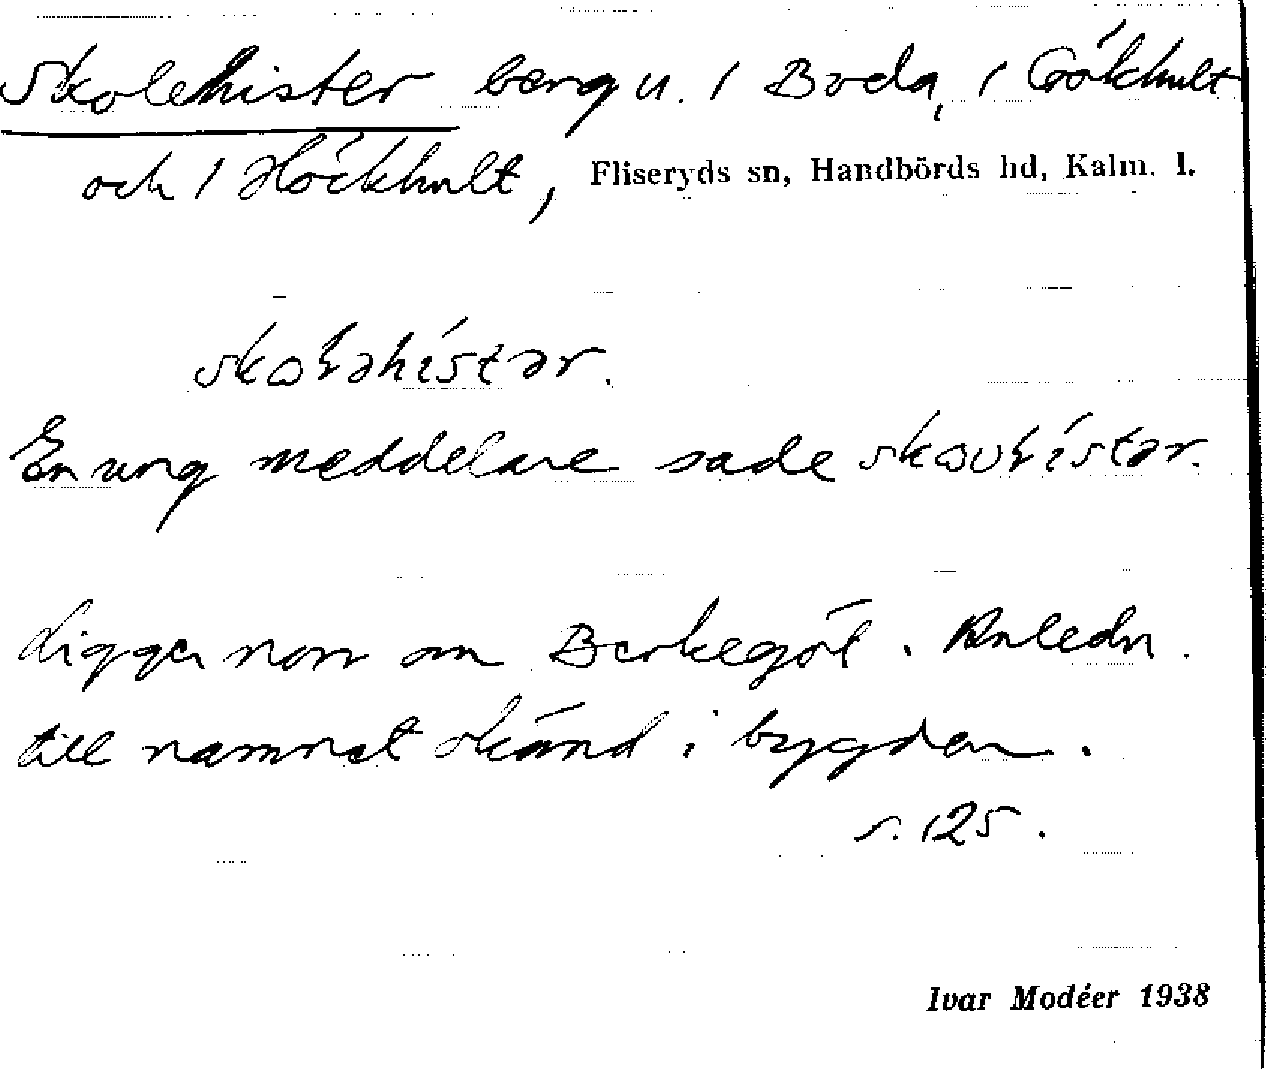 Skolekister berg u. 1 Boda, 1 Gökhult
och 1 Hökhult, Fliseryds sn, Handbörds hd, Kalm. l.
En ung meddelare sade
Ligger norr om Berkegöl. Anledn.
till namnet okänd i bygden.
s. 125.
Ivar Modéer 1938